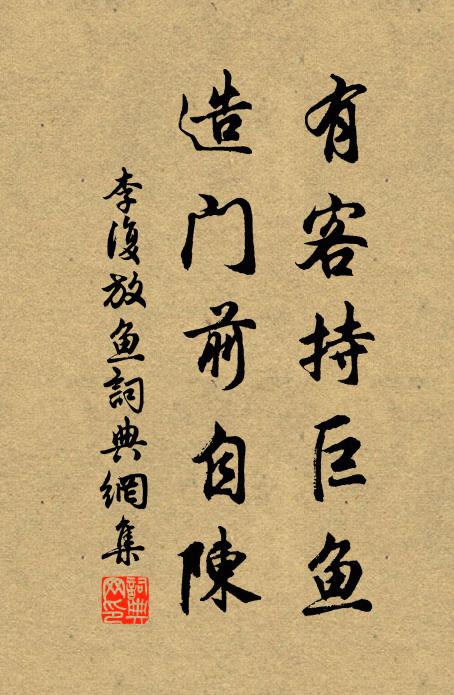 有客持巨鱼
造门前自陳
李復放鱼詞典網集
詞典网印